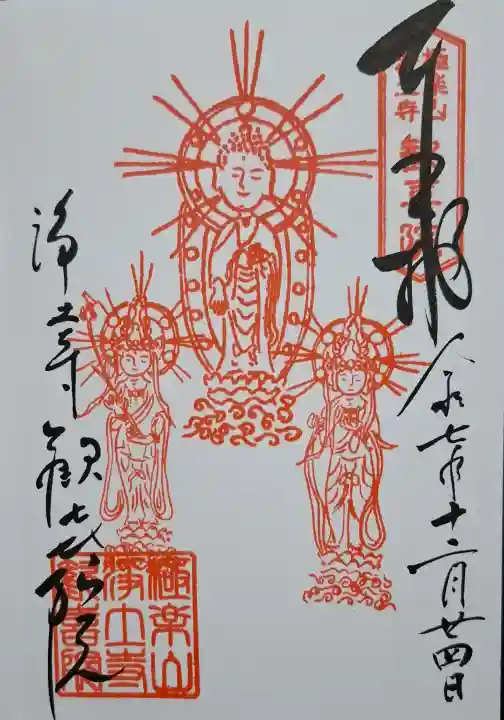 奉拝
極楽山
浄土寺 歓喜院
令和七年十二月廿四日
浄土寺 歓㐂院
極楽山
浄土寺
歓喜院